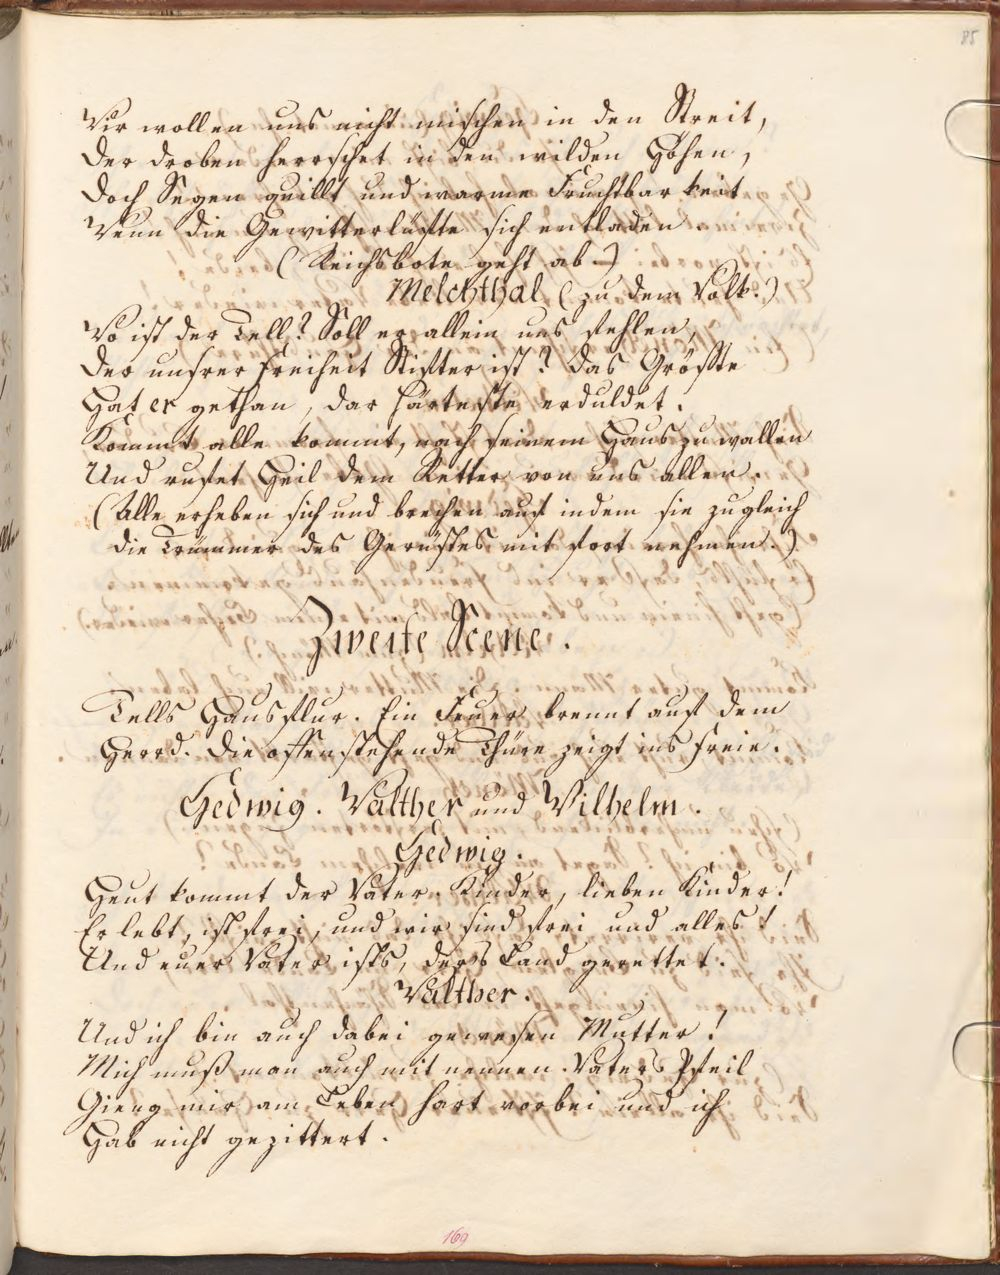 85
Wir wollen uns nicht mischen in den Streit,
Der droben herrschet in den wilden Höhen,
Doch Segen quillt und warme Fruchtbarkeit
Wenn die Gewitterlüfte sich entladen.
(Reichsbote geht ab.)
Melchthal (zu dem Volk.)
Wo ist der Tell? Soll er allein uns fehlen,
Der unsrer Freiheit Stifter ist? Das Größte
Hat er gethan, das härteste erduldet.
Kommt alle kommt, nach seinem Haus zu wallen
Und rufet Heil dem Retter von uns allen.
(Alle erheben sich und brechen auf indem sie zugleich
die Trümmer des Gerüstes mit fort nehmen.)
Zweite Scene.
Tells Hausflur. Ein Feuer brennt auf dem
Heerd. Die offenstehende Thüre zeigt ins Freie.
Hedwig. Walther und Wilhelm.
Hedwig.
Heut kommt der Vater. Kinder, lieben Kinder!
Er lebt, ist frei, und wir sind frei und alles!
Und euer Vater ists, der's Land gerettet.
Walther.
Und ich bin auch dabei gewesen Mutter!
Mich muß man auch mit nennen. Vaters Pfeil
Gieng mir am Leben hart vorbei und ich
Hab nicht gezittert.
169